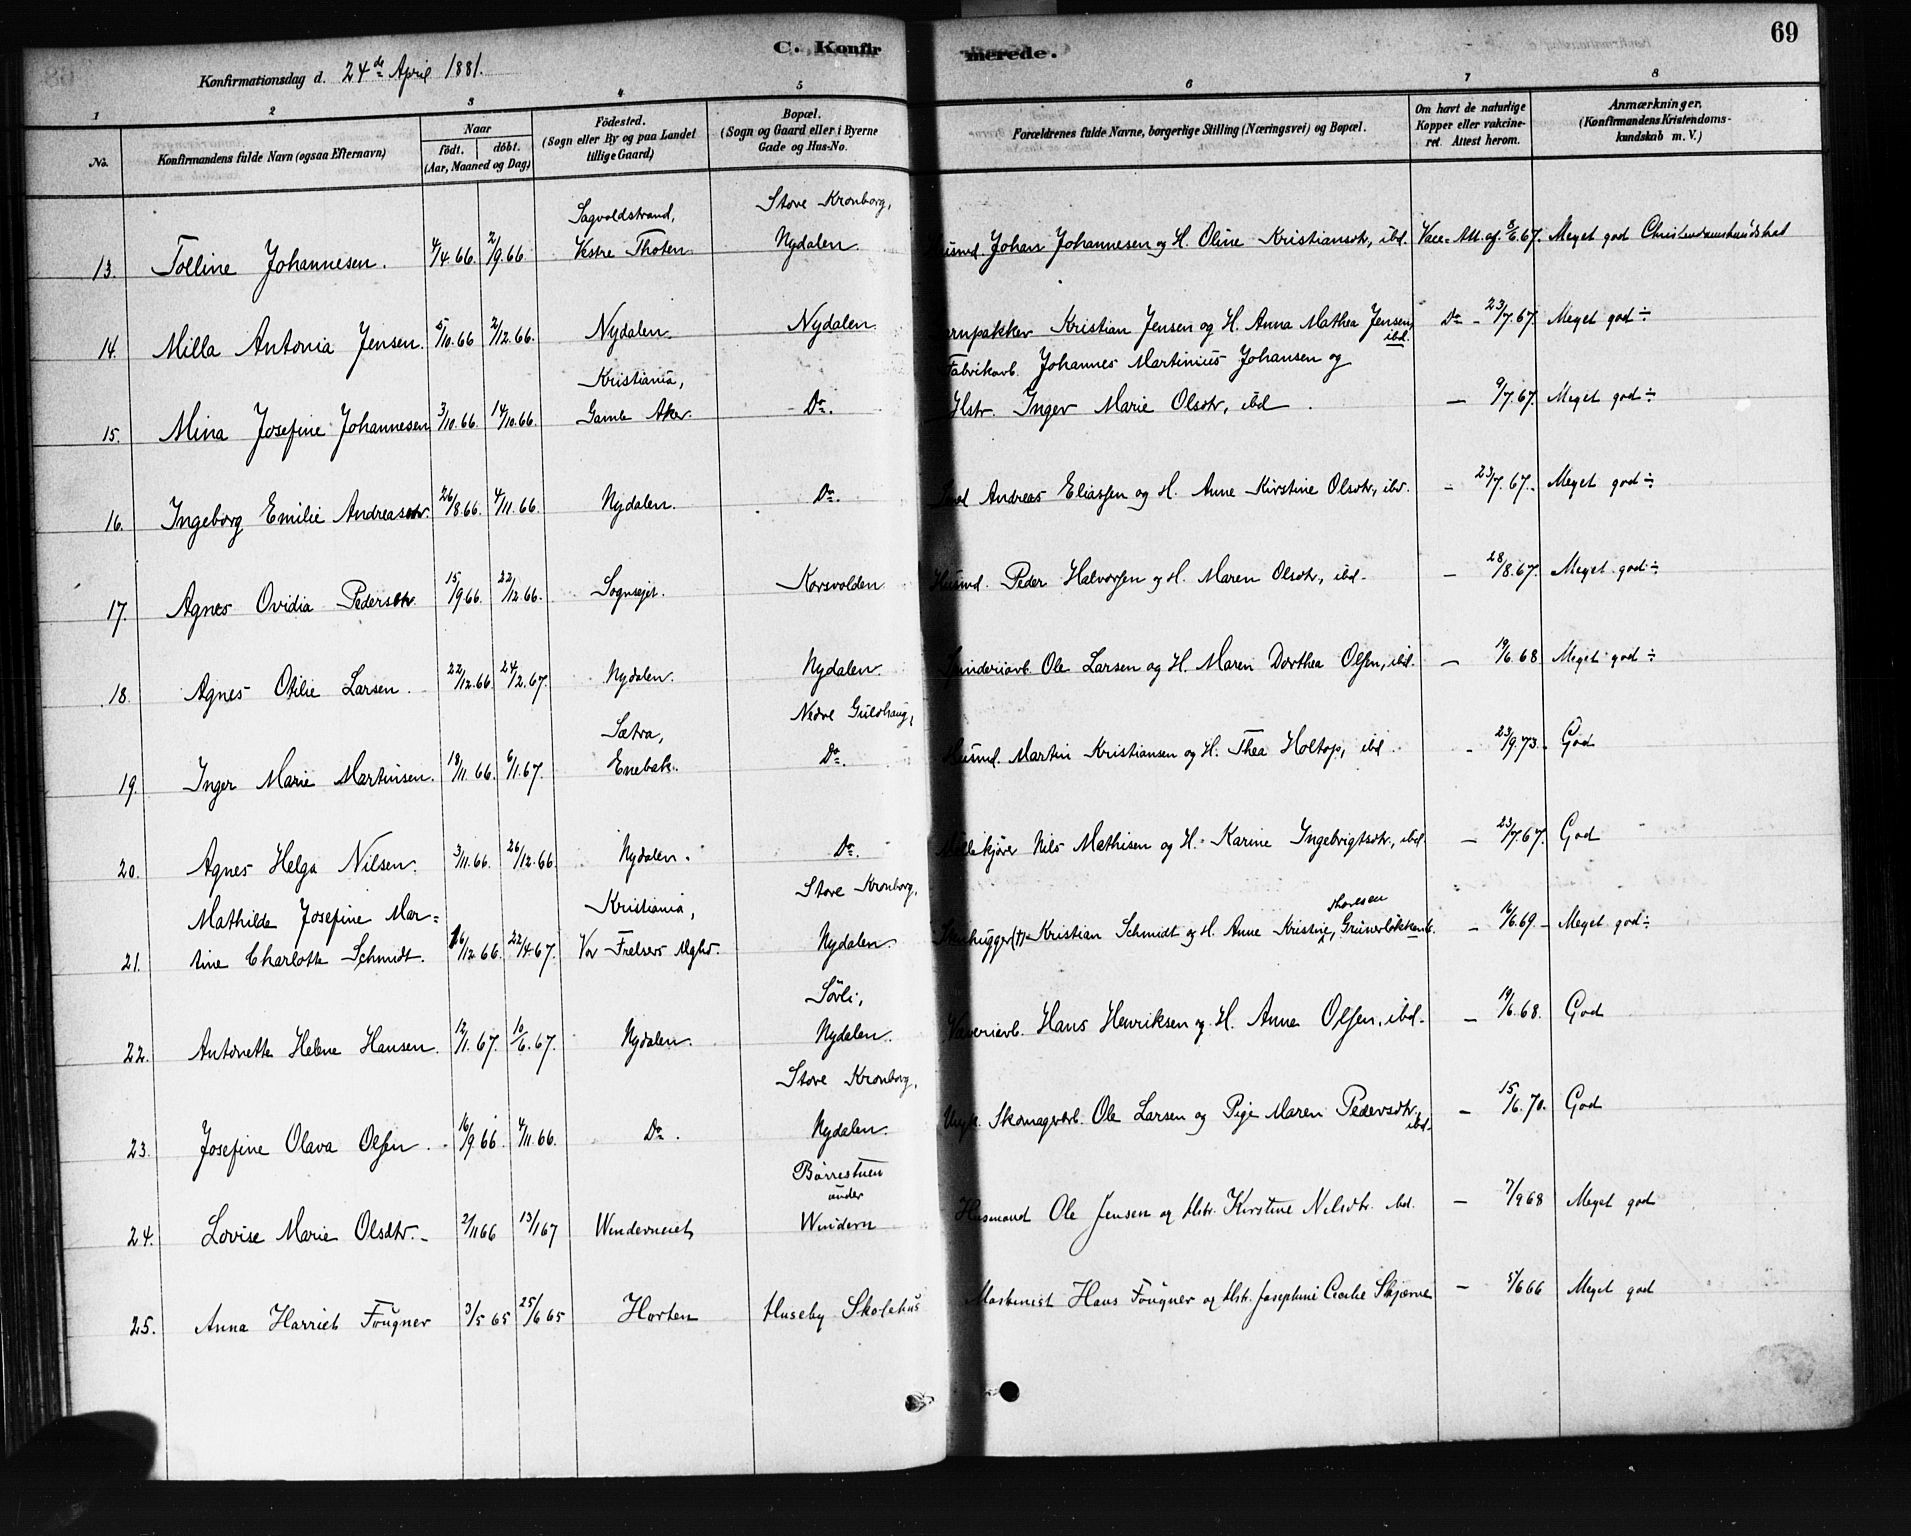 69
C. Konfirmerede.
Konfirmationsdag d. 24de April 1881.
1 2 3 4 5 6 7 8
No. Konfirmandens fulde Navn (ogsaa Efternavn) Naar født. døbt. (Aar, Maaned og Dag) Födested. (Sogn eller By og paa Landet tillige Gaard) Bopæl. (Sogn og Gaard eller i Byerne Gade og Hus-No. Forældrenes fulde Navne, borgerlige Stilling (Næringsvei) og Bopæl. Om havt de naturlige Kopper eller vakcineret. Attest herom. Anmærkninger, (Konfirmandens Kristendomskundskab m. V.)
Sagvoldstrand, Store Kronborg,
13. Tolline Johannesen. 4/4.66. 2/9.66. Vestre Thoten. Nydalen. Husmd. Johan Johannesen og H. Oline Kristiansdtr, ibd. Vacc. Att. af 3/6.67. Meget god Christendomskundskab
14. Milla Antonia Jensen. 5/10.66 2/12.66. Nydalen. Nydalen. Garnpakker Kristian Jensen og H. Anna Mathea Jensen, ibd. Do - 23/7.67. Meget god ÷
Kristiania, Fabrikarb. Johannes Martinius Johansen og
15. Mina Josefine Johannesen 3/10.66. 14/10.66. Gamle Aker. Do. Hstr. Inger Marie Olsdtr, ibd. — 9/7.67. Meget god ÷
16. Ingeborg Emilie Andreasdtr. 26/8.66. 4/11.66. Nydalen. Do. Smed Andreas Eliassen og H. Anne Kirstine Olsdtr, ibd. - 23/7.67. Meget god ÷
17. Agnes Ovidia Pedersdtr. 15/9.66. 22/12.66. Sognsejet. Korsvolden Husmd. Peder Halvorsen og H. Maren Olsdtr, ibd. — 28/8.67. Meget god ÷
18. Agnes Otilie Larsen. 22/12.66. 24/2.67. Nydalen. Nydalen. Spinderiarb. Ole Larsen og H. Maren Dorthea Olsen, ibd. — 19/6.68 Meget god ÷
Sætra, Nedre Guldhaug,
19. Inger Marie Martinsen. 18/11.66. 6/1.67. Enebak. Do. Husmd. Martin Kristiansen og H. Thea Holtop, ibd. - 23/9.73. God
20. Agnes Helga Nilsen. 3/11.66. 26/12.66. Nydalen. Do. Møllekjører Nils Mathisen og H. Karine Ingebrigtsdtr, ibd. — 23/7.67. God
Mathilde Josefine Mar= Kristiania, Store Kronborg, Thoresen
21. tine Charlotte Schmidt. 16/12.66. 22/4.67. Vor Frelsers Mghd. Nydalen. Stenhugger (†) Kristian Schmidt og H. Anne Kristine, Grünerløkken. - 16/6.69. Meget god ÷
Sørli,
22. Antonette Helene Hansen. 12/1.67. 10/6.67. Nydalen. Nydalen. Væveriarb. Hans Henriksen og H. Anne Olsen, ibd. — 19/6.68. God
Store Kronborg,
23. Josefine Olava Olsen. 16/9.66. 4/11.66. Do. Nydalen. Ungk. Skomagerarb. Ole Larsen og Pige Maren Pedersdtr, ibd. — 15/6.70. God
Børrestuen under
24. Lovise Marie Olsdtr. 2/11 66 13/1 67 Winderneiet Windern Husmand Ole Jensen og Hstr. Kirstine Nilsdtr. ibd. — 7/9 68 Meget god
25. Anna Harriet Fougner 3/5 65 25/6 65 Horten Huseby Skolehus Maskinist Hans Fougner og Hstr. Josephine Cecilie Skjærve — 5/6 66 Meget god